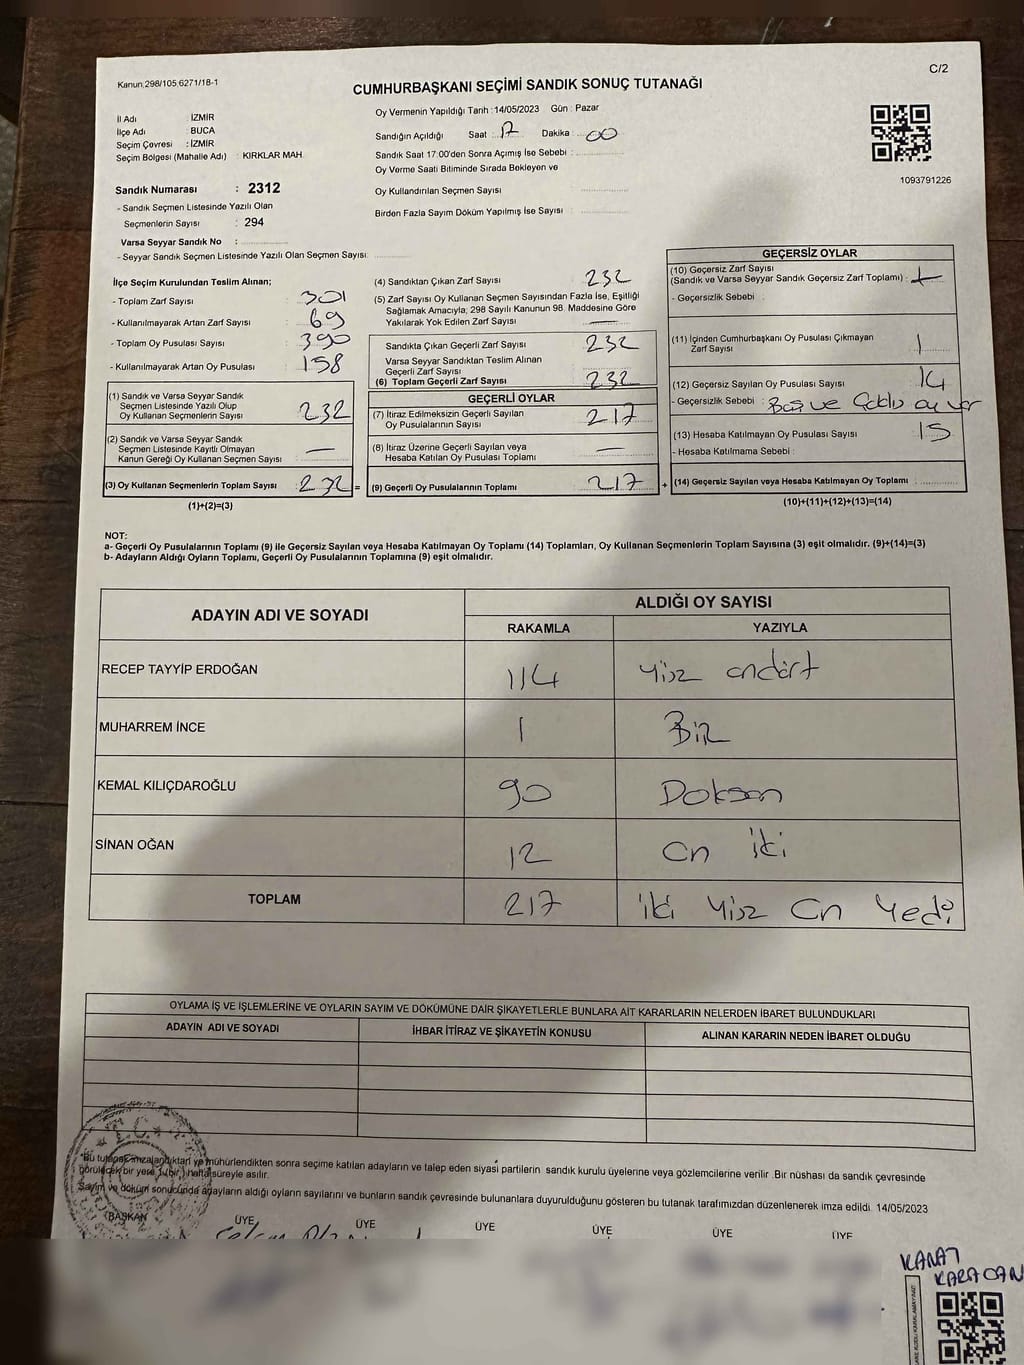 Kanun 298/105,6271/18-1
C/2
CUMHURBAŞKANI SEÇİMİ SANDIK SONUÇ TUTANAĞI
İl Adı : İZMİR
İlçe Adı : BUCA
Seçim Çevresi : İZMİR
Seçim Bölgesi (Mahalle Adı) : KIRKLAR MAH.
Sandık Numarası : 2312
- Sandık Seçmen Listesinde Yazılı Olan
Seçmenlerin Sayısı : 294
Varsa Seyyar Sandık No :
- Seyyar Sandık Seçmen Listesinde Yazılı Olan Seçmen Sayısı:
Oy Vermenin Yapıldığı Tarih :14/05/2023 Gün : Pazar
Sandığın Açıldığı Saat : 17 Dakika : 00
Sandık Saat 17:00'den Sonra Açımış İse Sebebi :
Oy Verme Saati Bitiminde Sırada Bekleyen ve
Oy Kullandırılan Seçmen Sayısı
Birden Fazla Sayım Döküm Yapılmış İse Sayısı :
1093791226
İlçe Seçim Kurulundan Teslim Alınan;
- Toplam Zarf Sayısı : 301
- Kullanılmayarak Artan Zarf Sayısı : 69
- Toplam Oy Pusulası Sayısı : 390
- Kullanılmayarak Artan Oy Pusulası : 158
(1) Sandık ve Varsa Seyyar Sandık
Seçmen Listesinde Yazılı Olup
Oy Kullanan Seçmenlerin Sayısı : 232
(2) Sandık ve Varsa Seyyar Sandık
Seçmen Listesinde Kayıtlı Olmayan
Kanun Gereği Oy Kullanan Seçmen Sayısı : —
(3) Oy Kullanan Seçmenlerin Toplam Sayısı : 232 =
(1)+(2)=(3)
(4) Sandıktan Çıkan Zarf Sayısı : 232
(5) Zarf Sayısı Oy Kullanan Seçmen Sayısından Fazla İse, Eşitliği
Sağlamak Amacıyla, 298 Sayılı Kanunun 98. Maddesine Göre
Yakılarak Yok Edilen Zarf Sayısı : —
Sandıkta Çıkan Geçerli Zarf Sayısı : 232
Varsa Seyyar Sandıktan Teslim Alınan
Geçerli Zarf Sayısı
(6) Toplam Geçerli Zarf Sayısı : 232
GEÇERLİ OYLAR
(7) İtiraz Edilmeksizin Geçerli Sayılan
Oy Pusulalarının Sayısı : 217
(8) İtiraz Üzerine Geçerli Sayılan veya
Hesaba Katılan Oy Pusulası Toplamı : —
(9) Geçerli Oy Pusulalarının Toplamı : 217 +
GEÇERSİZ OYLAR
(10) Geçersiz Zarf Sayısı
(Sandık ve Varsa Seyyar Sandık Geçersiz Zarf Toplamı) :
- Geçersizlik Sebebi :
(11) İçinden Cumhurbaşkanı Oy Pusulası Çıkmayan
Zarf Sayısı : 1
(12) Geçersiz Sayılan Oy Pusulası Sayısı : 14
- Geçersizlik Sebebi : Boş ve
(13) Hesaba Katılmayan Oy Pusulası Sayısı : 15
- Hesaba Katılmama Sebebi :
(14) Geçersiz Sayılan veya Hesaba Katılmayan Oy Toplamı :
(10)+(11)+(12)+(13)=(14)
NOT:
a- Geçerli Oy Pusulalarının Toplamı (9) ile Geçersiz Sayılan veya Hesaba Katılmayan Oy Toplamı (14) Toplamları, Oy Kullanan Seçmenlerin Toplam Sayısına (3) eşit olmalıdır. (9)+(14)=(3)
b- Adayların Aldığı Oyların Toplamı, Geçerli Oy Pusulalarının Toplamına (9) eşit olmalıdır.
ADAYIN ADI VE SOYADI
ALDIĞI OY SAYISI
RAKAMLA YAZIYLA
RECEP TAYYİP ERDOĞAN 114 Yüz ondört
MUHARREM İNCE 1 Bir
KEMAL KILIÇDAROĞLU 90 Doksan
SİNAN OĞAN 12 On iki
TOPLAM 217 iki Yüz On Yedi
OYLAMA İŞ VE İŞLEMLERİNE VE OYLARIN SAYIM VE DÖKÜMÜNE DAİR ŞİKAYETLERLE BUNLARA AİT KARARLARIN NELERDEN İBARET BULUNDUKLARI
ADAYIN ADI VE SOYADI İHBAR İTİRAZ VE ŞİKAYETİN KONUSU ALINAN KARARIN NEDEN İBARET OLDUĞU
T.C.
Bu tutanak imzalandıktan ve mühürlendikten sonra seçime katılan adayların ve talep eden siyasi partilerin sandık kurulu üyelerine veya gözlemcilerine verilir. Bir nüshası da sandık çevresinde
görülecek bir yere 1 (bir) hafta süreyle asılır.
Sayım ve döküm sonucunda adayların aldığı oyların sayılarını ve bunların sandık çevresinde bulunanlara duyurulduğunu gösteren bu tutanak tarafımızdan düzenlenerek imza edildi. 14/05/2023
BAŞKAN ÜYE ÜYE ÜYE ÜYE ÜYE ÜYE
KANAT
KARACAN